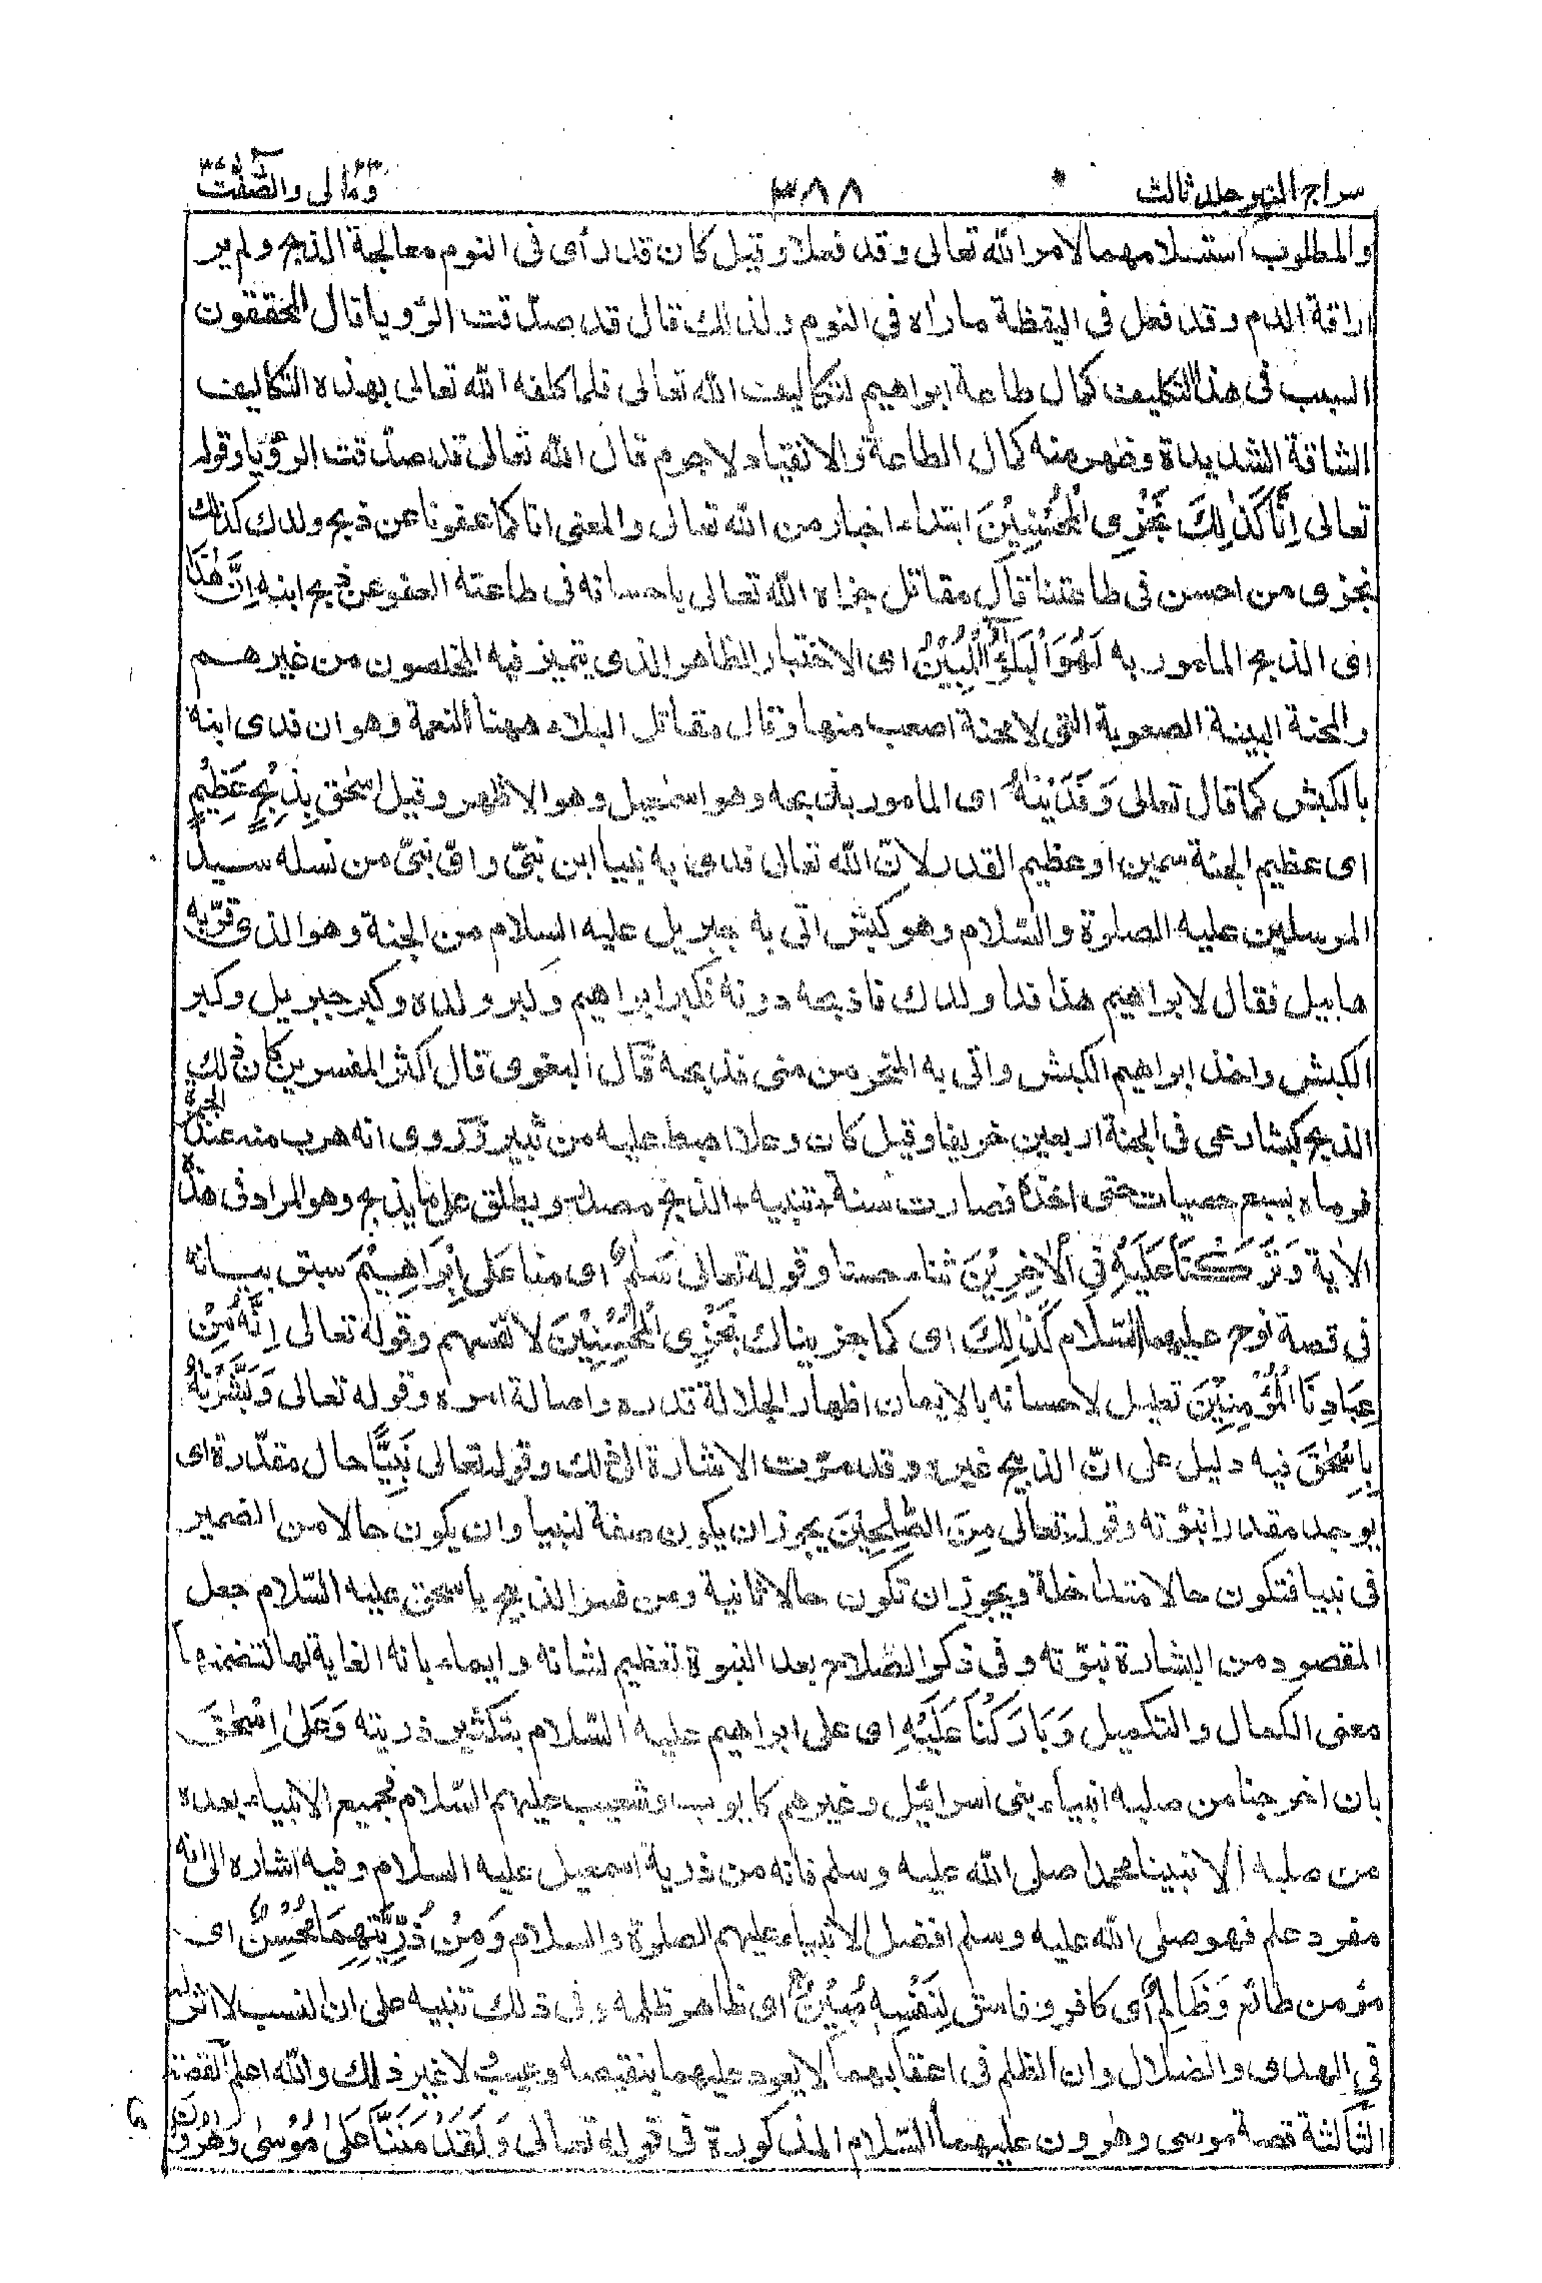 سراج المنير جلد ثالث ٣٨٨ ومالى ٢٣ والصّٰفّٰت ٣٧
والمطلوب استسلامهما لامر الله تعالى وقد فعلا وقيل كان قد رأى فى النوم معالجة الذبح ولم ير
اراقة الدم وقد فعل فى اليقظة ما رأه فى النوم ولذلك قال قد صدّقت الرّويا قال المحققون
السبب فى هذا التكليف كمال طاعة ابراهيم لتكاليف الله تعالى فلما كلفه الله تعالى بهذه التكاليف
الشاقة الشديدة وظهر منه كمال الطاعة والانقياد لا جرم قال الله تعالى قد صدّقت الرّؤيا وقوله
تعالى اِنَّا كَذٰلِكَ نَجْزِى الْمُحْسِنِيْنَ ابتداء اخبار من الله تعالى والمعنى انا كما عفونا عن ذبح ولدك كذلك
نجزى من احسن فى طاعتنا قال مقاتل جزاه الله تعالى باحسانه فى طاعته العفو عن ذبح ابنه اِنَّ هٰذَا
اى الذبح المامور به لَهُوَ الْبَلٰٓؤُا الْمُبِيْنُ اى الاختبار الظاهر الذى يتميز فيه المخلصون من غيرهم
والمحنة البينة الصعوبة التى لا محنة اصعب منها وقال مقاتل البلاء ههنا النعمة وهو ان فدى ابنه
بالكبش كما قال تعالى وَفَدَيْنٰهُ اى المامور بذبحه وهو اسمٰعيل وهو الاظهر وقيل اسحٰق بِذِبْحٍ عَظِيْمٍ
اى عظيم الجثة سمين او عظيم القدر لانّ الله تعالى فدى به نبيا ابن نبىّ واىّ نبىّ من نسله سيد
المرسلين عليه الصلوة والسّلام وهو كبش اتى به جبريل عليه السلام من الجنة وهو الذى قرّبه
هابيل فقال لابراهيم هذا فداء ولدك فاذبحه دونه فكبر ابراهيم وكبر ولده وكبر جبريل وكبر
الكبش واخذ ابراهيم الكبش واتى به المنحر من منى فذبحه قال البغوى قال اكثر المفسرين كان ذلك
الذبح كبشا رعى فى الجنة اربعين خريفا وقيل كان وعلا اهبط عليه من ثبير وروى انه هرب منه عند الجمرة
فرماه بسبع حصيات حتى اخذه فصارت سنة + تنبيه + الذبح مصدر ويطلق على ما يذبح وهو المراد فى هذه
الاية وَتَرَكْنَا عَلَيْهِ فِى الْاٰخِرِيْنَ ثناء حسنا وقوله تعالى سَلٰمٌ اى منا عَلٰى اِبْرَاهِيْمَ سبق بيانه
فى قصة نوح عليهما السّلام كَذٰلِكَ اى كما جزيناك نَجْزِى الْمُحْسِنِيْنَ لانفسهم وقوله تعالى اِنَّهٗ مِنْ
عِبَادِنَا الْمُؤْمِنِيْنَ تعليل لاحسانه بالايمان اظهار الجلالة قدره واصالة امره وقوله تعالى وَبَشَّرْنٰهُ
بِاِسْحٰقَ فيه دليل على انّ الذبيح غيره وقد مرّت الاشارة الى ذلك وقوله تعالى نَبِيًّا حال مقدّرة اى
يوجد مقدرا نبوّته وقوله تعالى مِنَ الصّٰلِحِيْنَ يجوز ان يكون صفة لنبيا وان يكون حالا من الضمير
فى نبيا فتكون حالا متداخلة ويجوز ان تكون حالا ثانية ومن فسر الذبيح باسحق عليه السّلام جعل
المقصود من البشارة نبوّته وفى ذكر الصّلاح بعد النبوة تعظيم لشانه وايماء بانه الغاية لها لتضمنها
معنى الكمال والتكميل وَبَارَكْنَا عَلَيْهِ اى على ابراهيم عليه السّلام بتكثير ذريته وَعَلٰى اِسْحٰقَ
بان اخرجنا من صلبه انبياء بنى اسرائيل وغيرهم كايوب وشعيب عليهم السّلام فجميع الانبياء بعده
من صلبه الا نبينا محمدا صلى الله عليه وسلم فانه من ذرية اسمعيل عليه السلام وفيه اشاره الى انه
مفرد علم فهو صلى الله عليه وسلم افضل الانبياء عليهم الصلوة والسلام وَمِنْ ذُرِّيَّتِهِمَا مُحْسِنٌ اى
مؤمن طائع وَظَالِمٌ اى كافر وفاسق لِنَفْسِهٖ مُبِيْنٌ اى ظاهر ظلمه وفى ذلك تنبيه على ان النسب لا اثر له
فى الهدى والضلال وان الظلم فى اعقابهما لا يعود عليهما بنقيصة وعيب لا غير ذلك والله اعلم القصة
الثالثة قصة موسى وهٰرون عليهما السّلام المذكورة فى قوله تعالى وَلَقَدْ مَنَنَّا عَلٰى مُوْسٰى وَهٰرُوْنَ